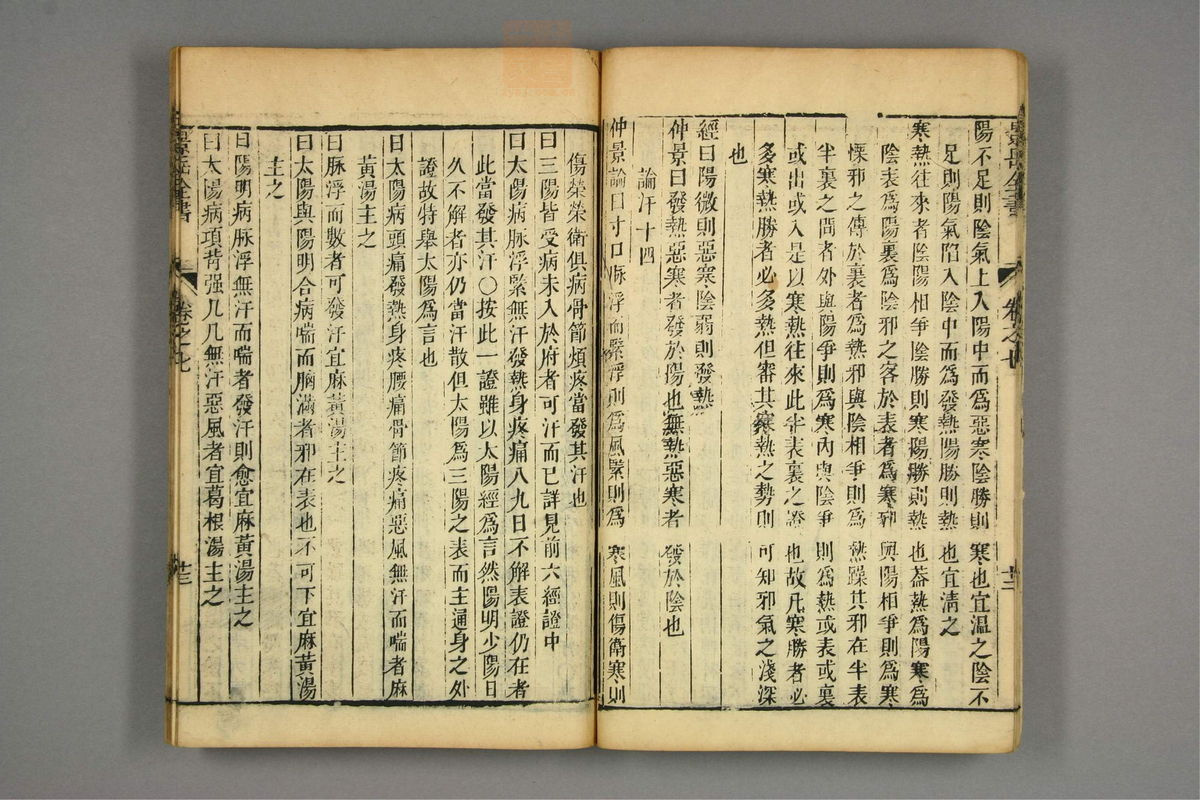 景岳全書
卷之七
廿二
陽不足則陰氣上入陽中而為惡寒陰勝則寒也宜溫之陰不
足則陽氣陷入陰中而為發熱陽勝則熱也宜清之
寒熱往來者陰陽相爭陰勝則寒陽勝則熱也葢熱為陽寒為
陰表為陽裏為陰邪之客於表者為寒邪與陽相爭則為寒
慄邪之傳於裏者為熱邪與陰相爭則為熱躁其邪在半表
半裏之間者外與陽爭則為寒內與陰爭則為熱或表或裏
或出或入是以寒熱往來此半表裏之證也故凡寒勝者必
多寒熱勝者必多熱但審其寒熱之勢則可知邪氣之淺深
也
經曰陽微則惡寒陰弱則發熱
仲景曰發熱惡寒者發於陽也無熱惡寒者發於陰也
論汗十四
仲景論曰寸口脉浮而緊浮則為風緊則為寒風則傷衛寒則
傷榮榮衛俱病骨節煩疼當發其汗也
曰三陽皆受病未入於府者可汗而已詳見前六經證中
曰太陽病脉浮緊無汗發熱身疼痛八九日不解表證仍在者
此當發其汗○按此一證雖以太陽經為言然陽明少陽日
久不解者亦仍當汗散但太陽為三陽之表而主通身之外
證故特舉太陽為言也
曰太陽病頭痛發熱身疼腰痛骨節疼痛惡風無汗而喘者麻
黃湯主之
曰脉浮而數者可發汗宜麻黃湯主之
曰太陽與陽明合病喘而胸滿者邪在表也不可下宜麻黃湯
主之
曰陽明病脉浮無汗而喘者發汗則愈宜麻黃湯主之
曰太陽病項背强几几無汗惡風者宜葛根湯主之
景岳全書
卷之七
廿三